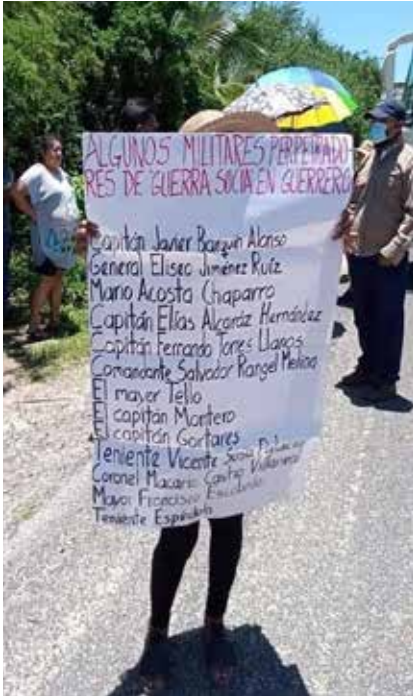 ALGUNOS MILITARES PERPETRADO
RES DE GUERRA SOCIA EN GUERRERO
Capitán Javier Barquín Alonso
General Eliseo Jiménez Ruíz
Mario Acosta Chaparro
Capitán Elías Alcaráz Hernández
Capitán Fernando Torres Llanos
Comandante Salvador Rangel Medina
El mayor Tello
El capitán Montero
El capitán Gortares
Teniente Vicente
Coronel Macario Castro Villarreal
Mayor Francisco Escobedo
Teniente Espíndola